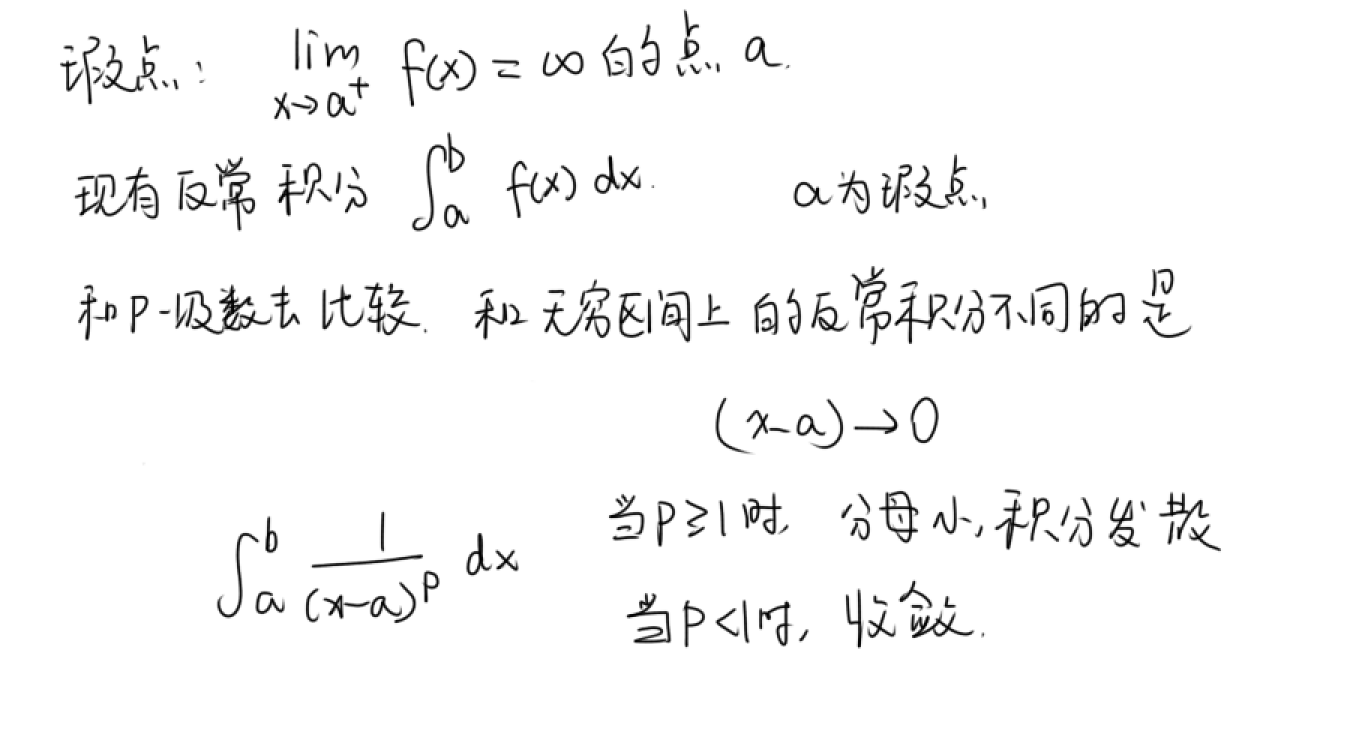 瑕点: lim_{x→a⁺} f(x) = ∞ 的点 a.
现有反常积分 ∫_a^b f(x) dx. a为瑕点,
和P-级数去比较. 和无穷区间上的反常积分不同的是
(x-a)→0
∫_a^b 1/(x-a)^p dx
当P≥1时, 分母小,积分发散
当P<1时, 收敛.